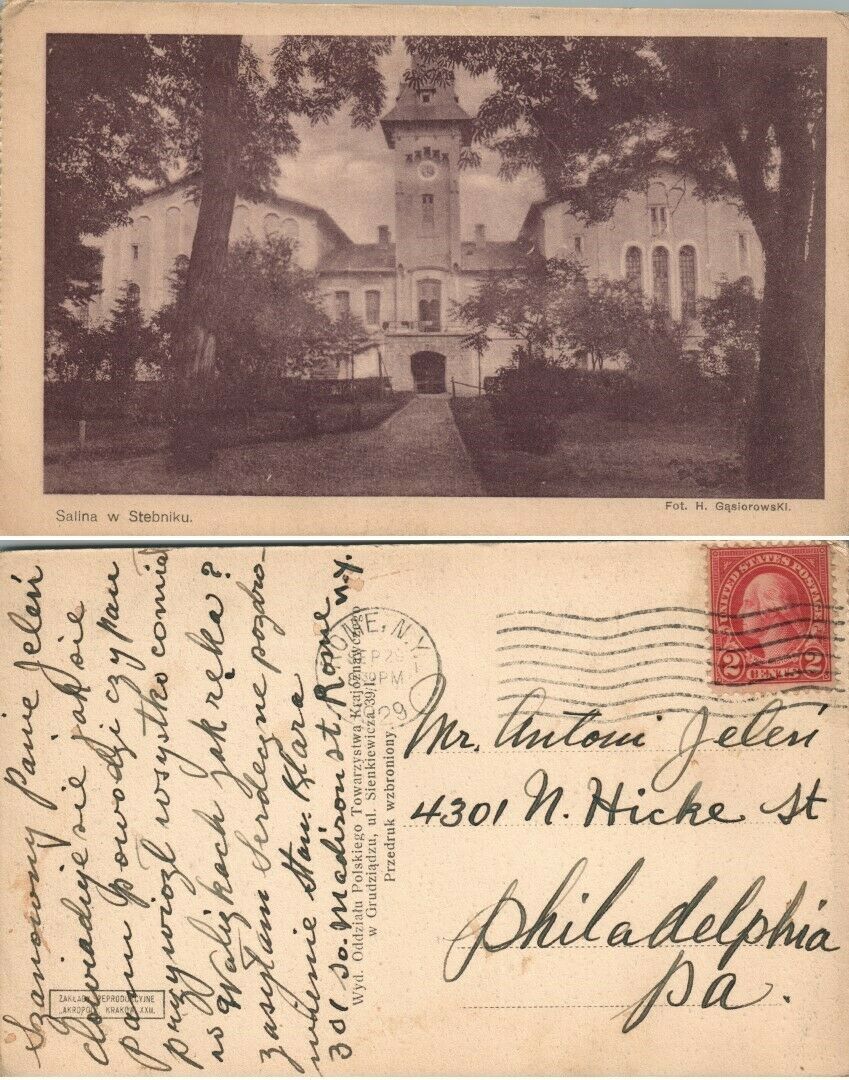 Salina w Stebniku.
Fot. H. Gąsiorowski.
Szanowny Panie Jeleń
dowiaduje sie jak sie
panu powodzi czy pan
przywiózł wsystko co miał
w Walizkach jak ręka?
zasyłam Serdecne pozdro-
wienie Stan. Klara
301 so. Madison st. Rome N.Y.
Wyd. Oddziału Polskiego Towarzystwa Krajoznawczego
w Grudziądzu, ul. Sienkiewicza 39/1.
Przedruk wzbroniony.
ZAKŁADY REPRODUKCYJNE
„AKROPOL" KRAKÓW XXII.
ROME, N.Y.
SEP 29
PM
1929
UNITED STATES POSTAGE
2 CENTS 2
Mr. Antoni Jeleń
4301 N. Hicke St
Philadelphia
Pa.